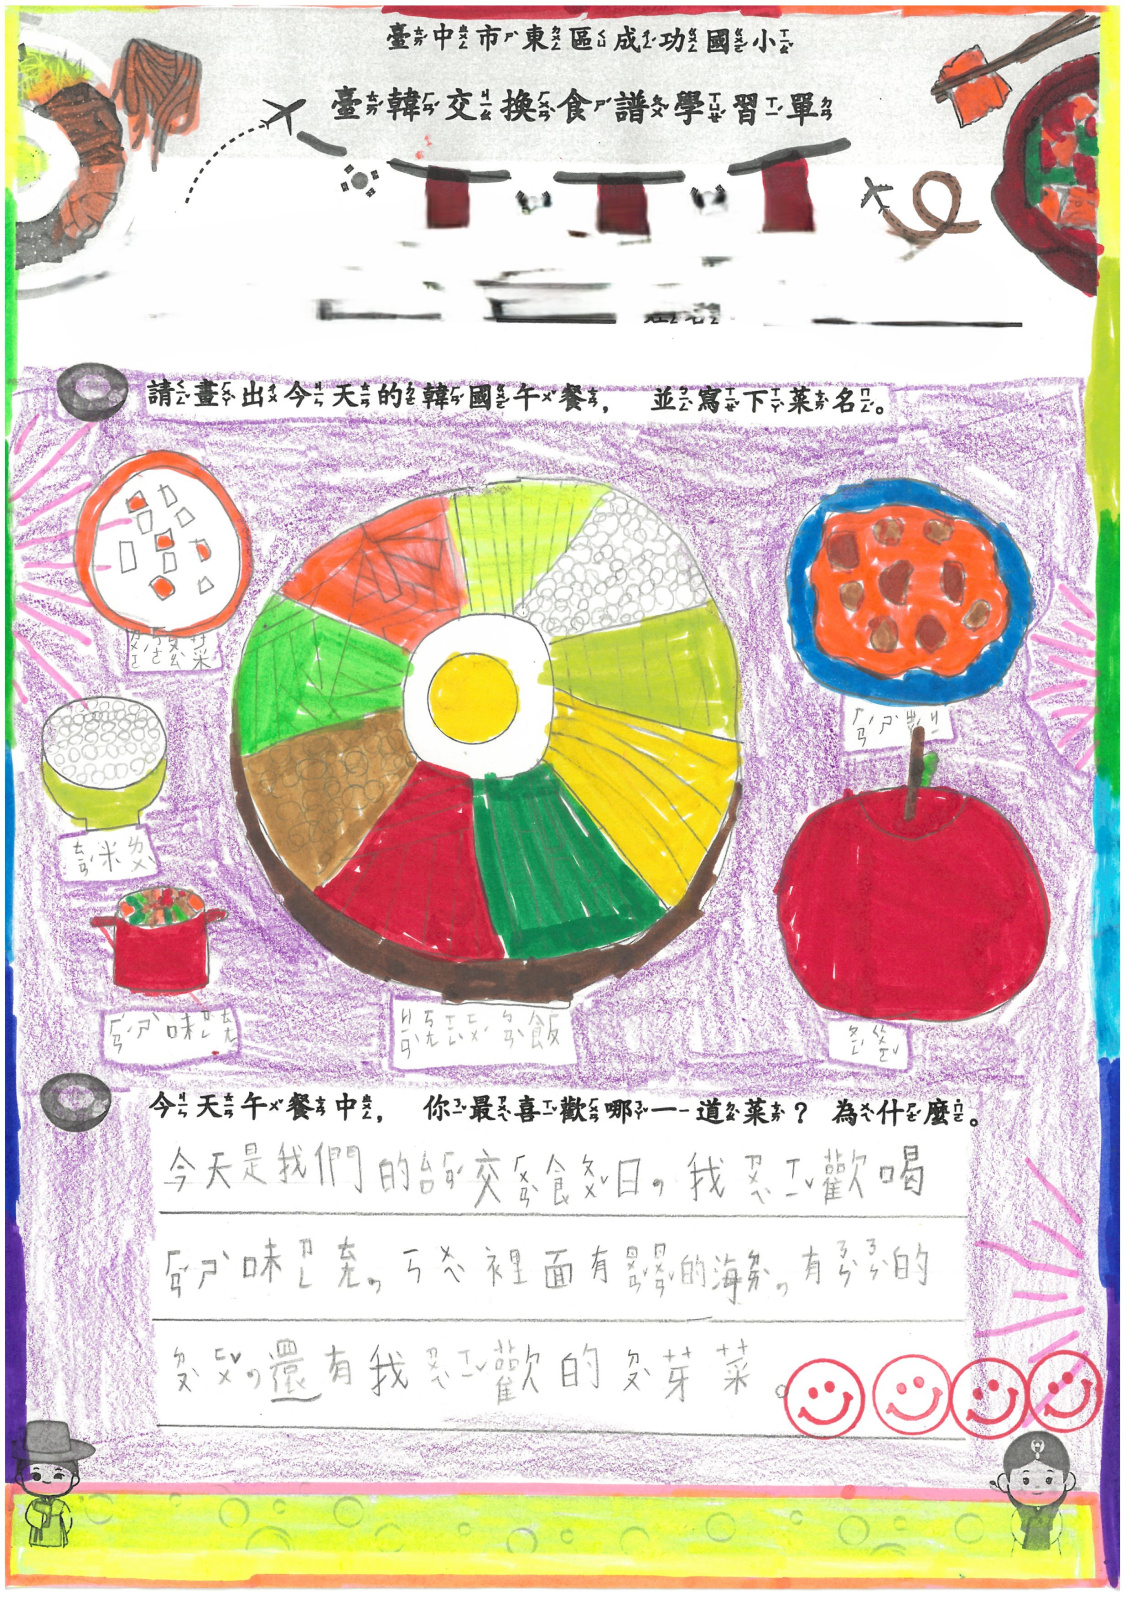 臺中市東區成功國小
臺韓交換食譜學習單
請畫出今天的韓國午餐， 並寫下菜名。
菜
米
ㄏㄢˊㄕˋ
ㄏㄢˊㄕˋ味ㄗㄥㄊㄤ
飯
今天午餐中， 你最喜歡哪一道菜？ 為什麼。
今天是我們的台ㄏㄢˊ交ㄏㄨㄢˋ食ㄆㄨˇ日，我ㄗㄨㄟˋㄒㄧˇ歡喝
ㄏㄢˊㄕˋ味ㄗㄥㄊㄤ，裡面有ㄇㄢˇㄇㄢˇ的海ㄉㄞˋ，有ㄋㄣˋㄋㄣˋ的
ㄉㄡˋㄈㄨˇ，還有我ㄗㄨㄟˋㄒㄧˇ歡的ㄉㄡˋ芽菜。